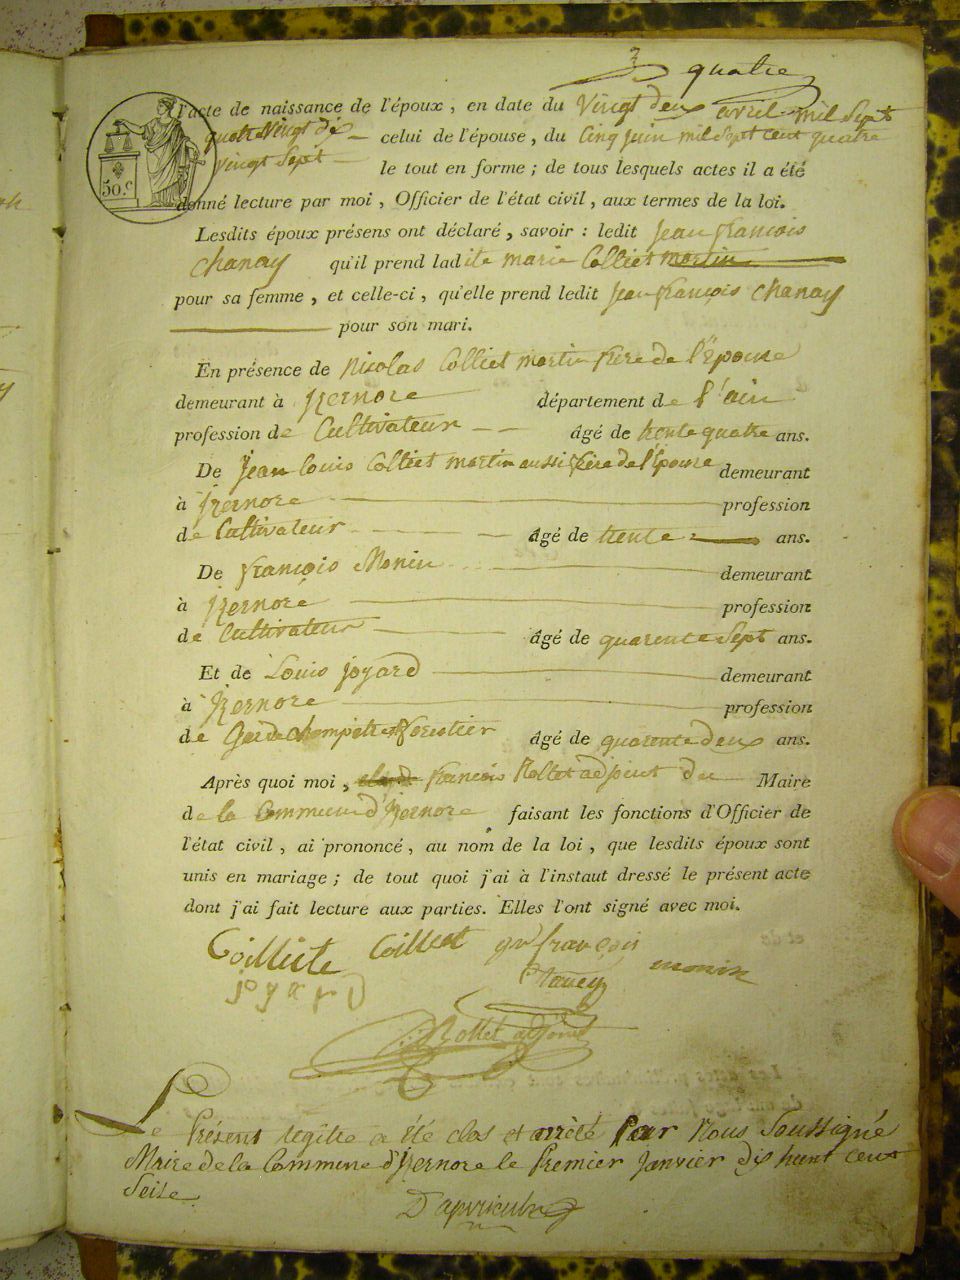 quatre
l'acte de naissance de l'époux, en date du vingt deux avril mil Sept
quatre vingt dix celui de l'épouse, du Cinq juin mil Sept cent quatre
vingt Sept le tout en forme ; de tous lesquels actes il a été
50.c
donné lecture par moi, Officier de l'état civil, aux termes de la loi.
Lesdits époux présens ont déclaré, savoir : ledit Jean francois
Chanay qu'il prend ladite marie Colliet martin
pour sa femme, et celle-ci, qu'elle prend ledit Jean françois Chanay
pour son mari.
En présence de Nicolas Colliet martin frere de l'Epouse
demeurant à Izernore département de l'ain
profession de Cultivateur âgé de trente quatre ans.
De Jean louis Colliet martin aussi frere de l'épouse demeurant
à Izernore profession
de Cultivateur âgé de trente ans.
De françois Monin demeurant
à Izernore profession
de Cultivateur âgé de quarente Sept ans.
Et de Louis joyard demeurant
à Izernore profession
de Garde champetre & forestier âgé de quarente deux ans.
Après quoi moi, françois Rollet adjoint du Maire
de la Commune d'Izernore faisant les fonctions d'Officier de
l'état civil, ai prononcé, au nom de la loi, que lesdits époux sont
unis en mariage ; de tout quoi j'ai à l'instaut dressé le présent acte
dont j'ai fait lecture aux parties. Elles l'ont signé avec moi.
Coilliete Coilliet françois
monin
joyard
Rollet adjoint
Le Présent registre a été clos et arrêté Par Nous Soussigné
Maire de la Commune d'Izernore le Premier Janvier dix huit cent
Seize